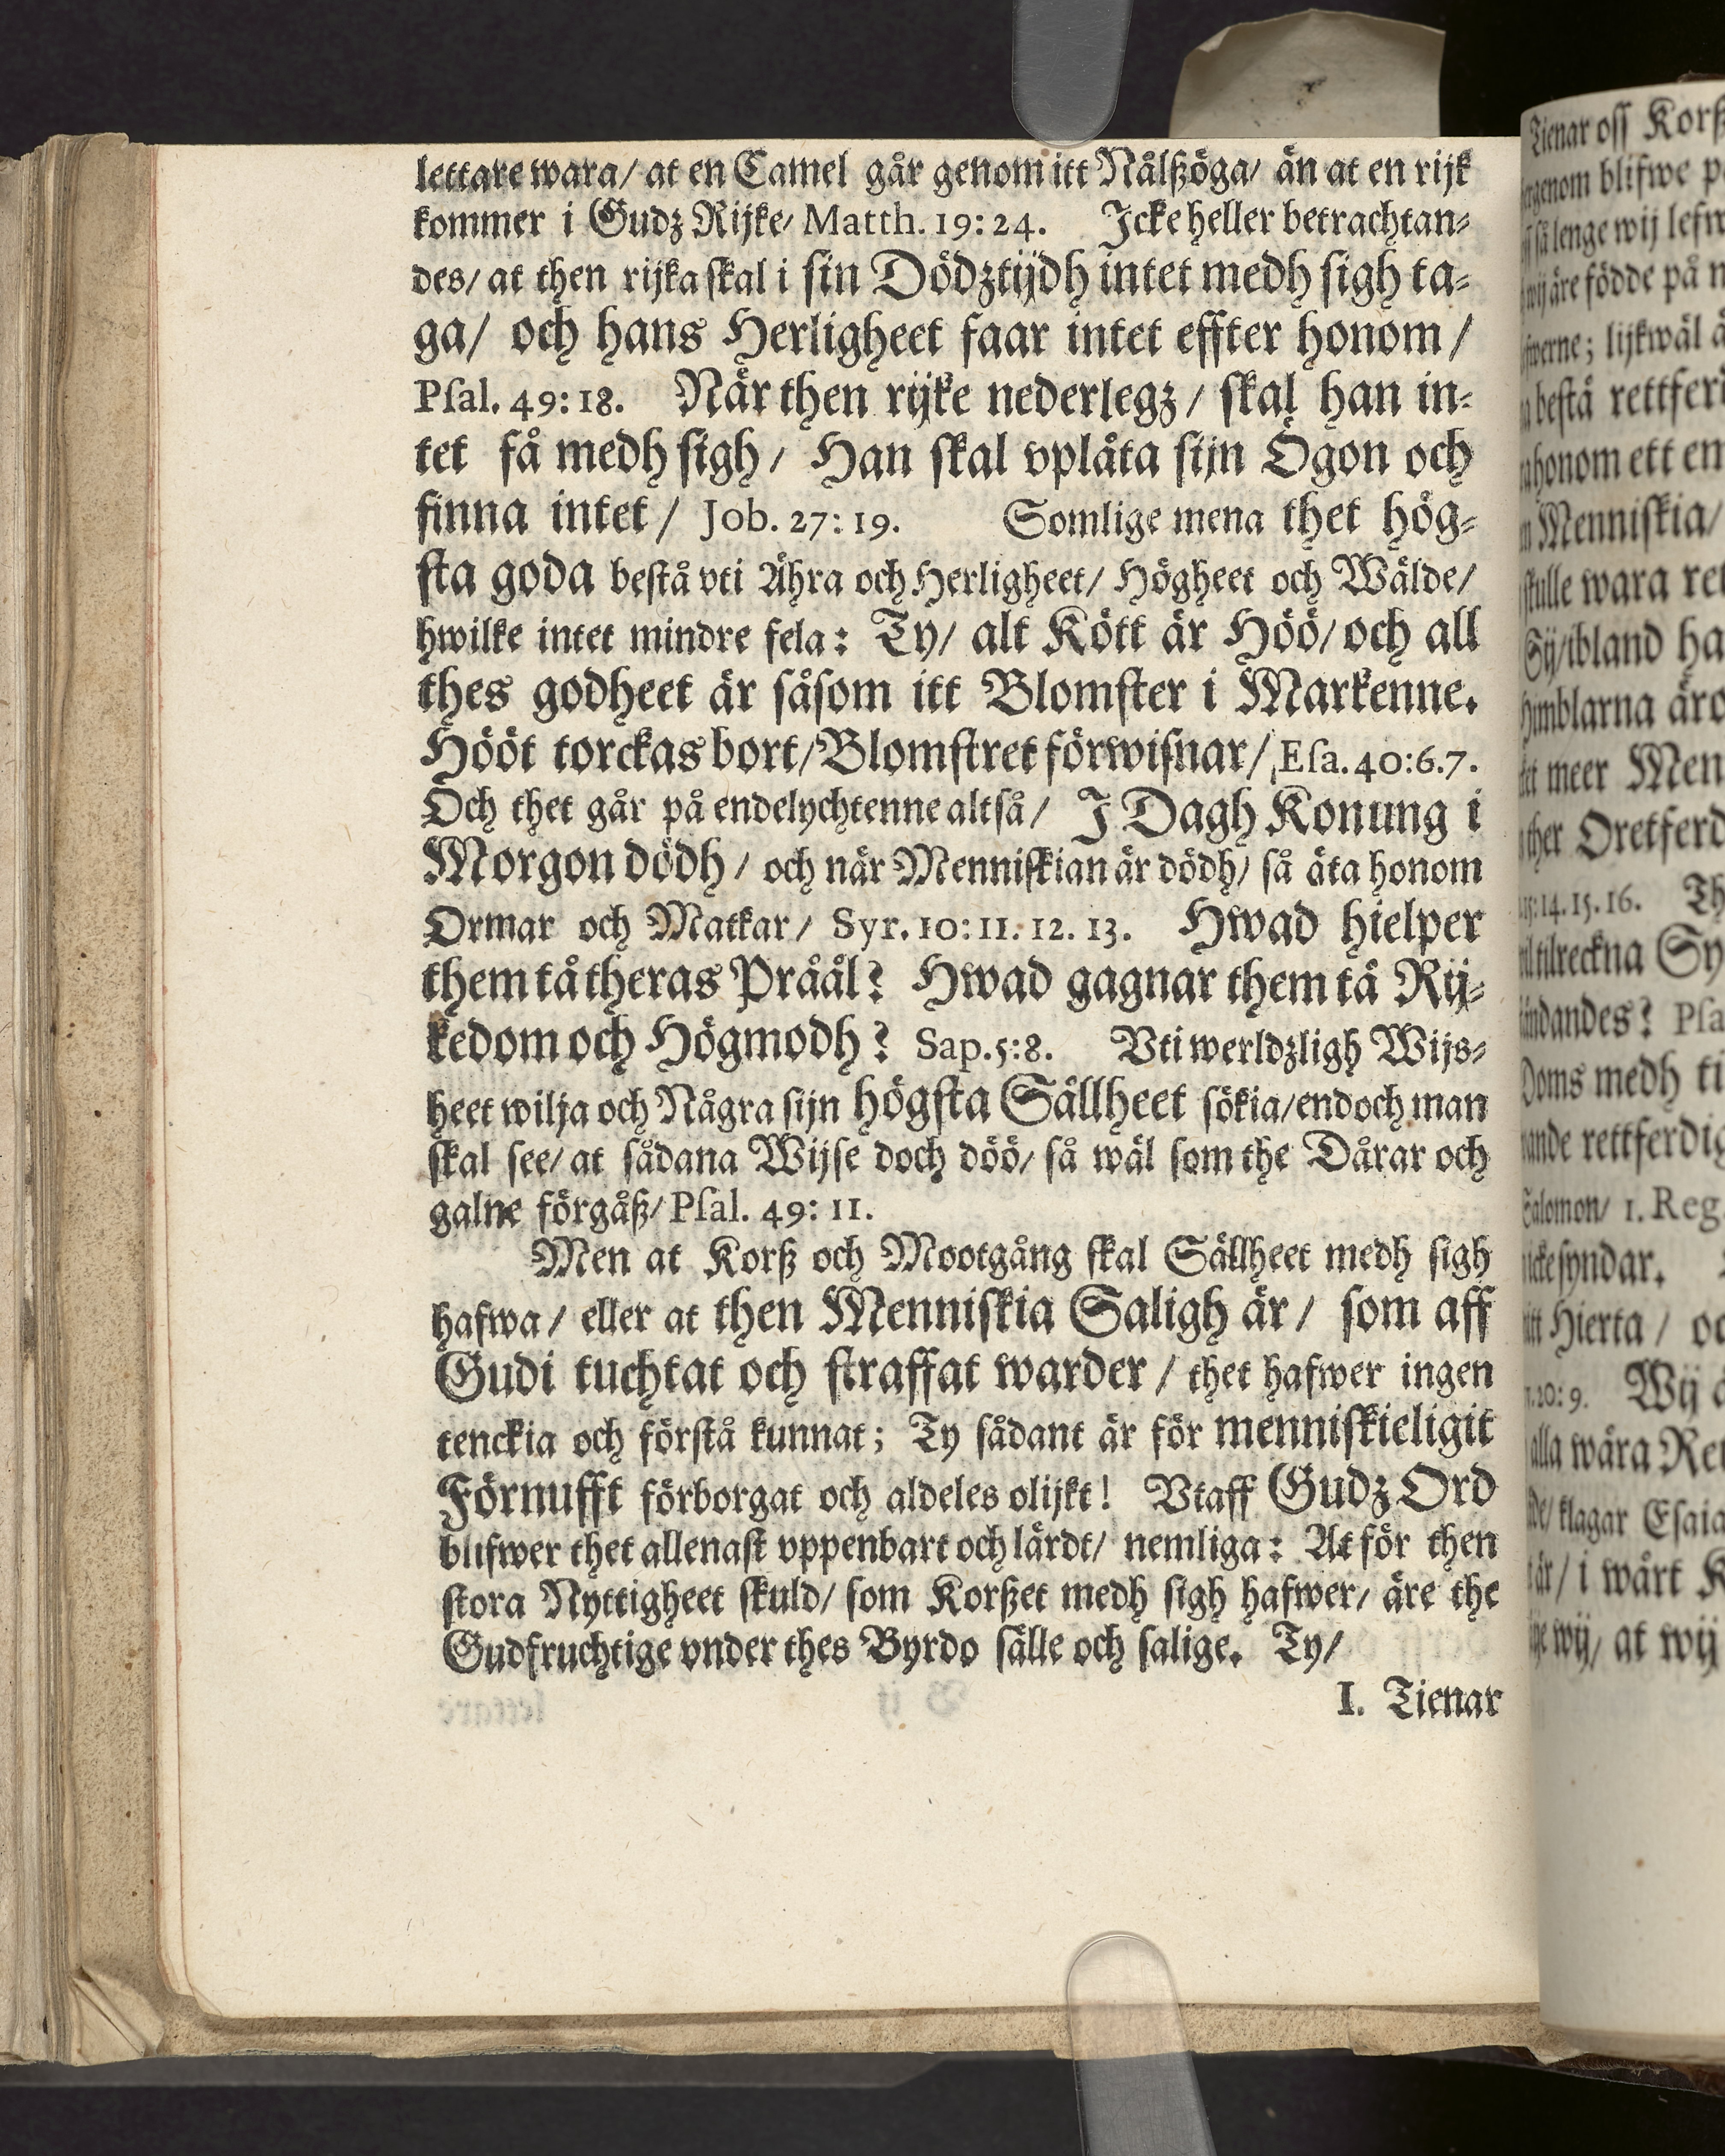 lettare wara/ at en Camel går genom itt Nålßöga/ än at en rijk
kommer i Gudz Rijke/ Matth. 19:24. Icke heller betrachtan-
des/ at then rijka skal i sin Dödztijdh intet medh sigh ta-
ga/ och hans Herligheet faar intet effter honom/
Psal. 49:18. När then rijke nederlegz/ skal han in-
tet få medh sigh/ Han skal vplåta sijn Ögon och
finna intet/ Job. 27:19. Somlige mena thet hög-
sta goda bestå vti Ähra och Herligheet/ Högheet och Wälde/
hwilke intet mindre fela: Ty/ alt Kött är Höö/ och all
thes godheet är såsom itt Blomster i Markenne.
Hööt torckas bort/ Blomstret förwisnar/ Esa. 40:6.7.
Och thet går på endelychtenne altså/ I Dagh Konung i
Morgon dödh/ och när Menniskian är dödh/ så äta honom
Ormar och Matkar/ Syr. 10:11. 12. 13. Hwad hielper
them tå theras Pråål? Hwad gagnar them tå Rij-
kedom och Högmodh? Sap. 5:8. Vti werldzligh Wijs-
heet wilja och Några sijn högsta Sällheet sökia/ endoch man
skal see/ at sådana Wijse doch döö/ så wäl som the Dårar och
galne förgåß/ Psal. 49:11.
Men at Korß och Mootgång skal Sällheet medh sigh
hafwa/ eller at then Menniskia Saligh är/ som aff
Gudi tuchtat och straffat warder/ thet hafwer ingen
tenckia och förstå kunnat; Ty sådant är för menniskieligit
Förnufft förborgat och aldeles olijkt! Vtaff Gudz Ord
blifwer thet allenast vppenbart och lärdt/ nemliga: At för then
stora Nyttigheet skuld/ som Korßet medh sigh hafwer/ äre the
Gudfruchtige vnder thes Byrdo sälle och salige. Ty/
I. Tienar
Tienar oss
blifwe
lenge wij
äre födde på
lijkwäl
bestå
honom ett en
Menniskia/
skulle wara
ibland
äro
meer
Oretferd
14. 15. 16.
tilreckna
medh
Salomon/ 1. Reg
syndar.
Hierta/
Wij
alla wåra
klagar Esaia
är/ i wårt
wij/ at wij